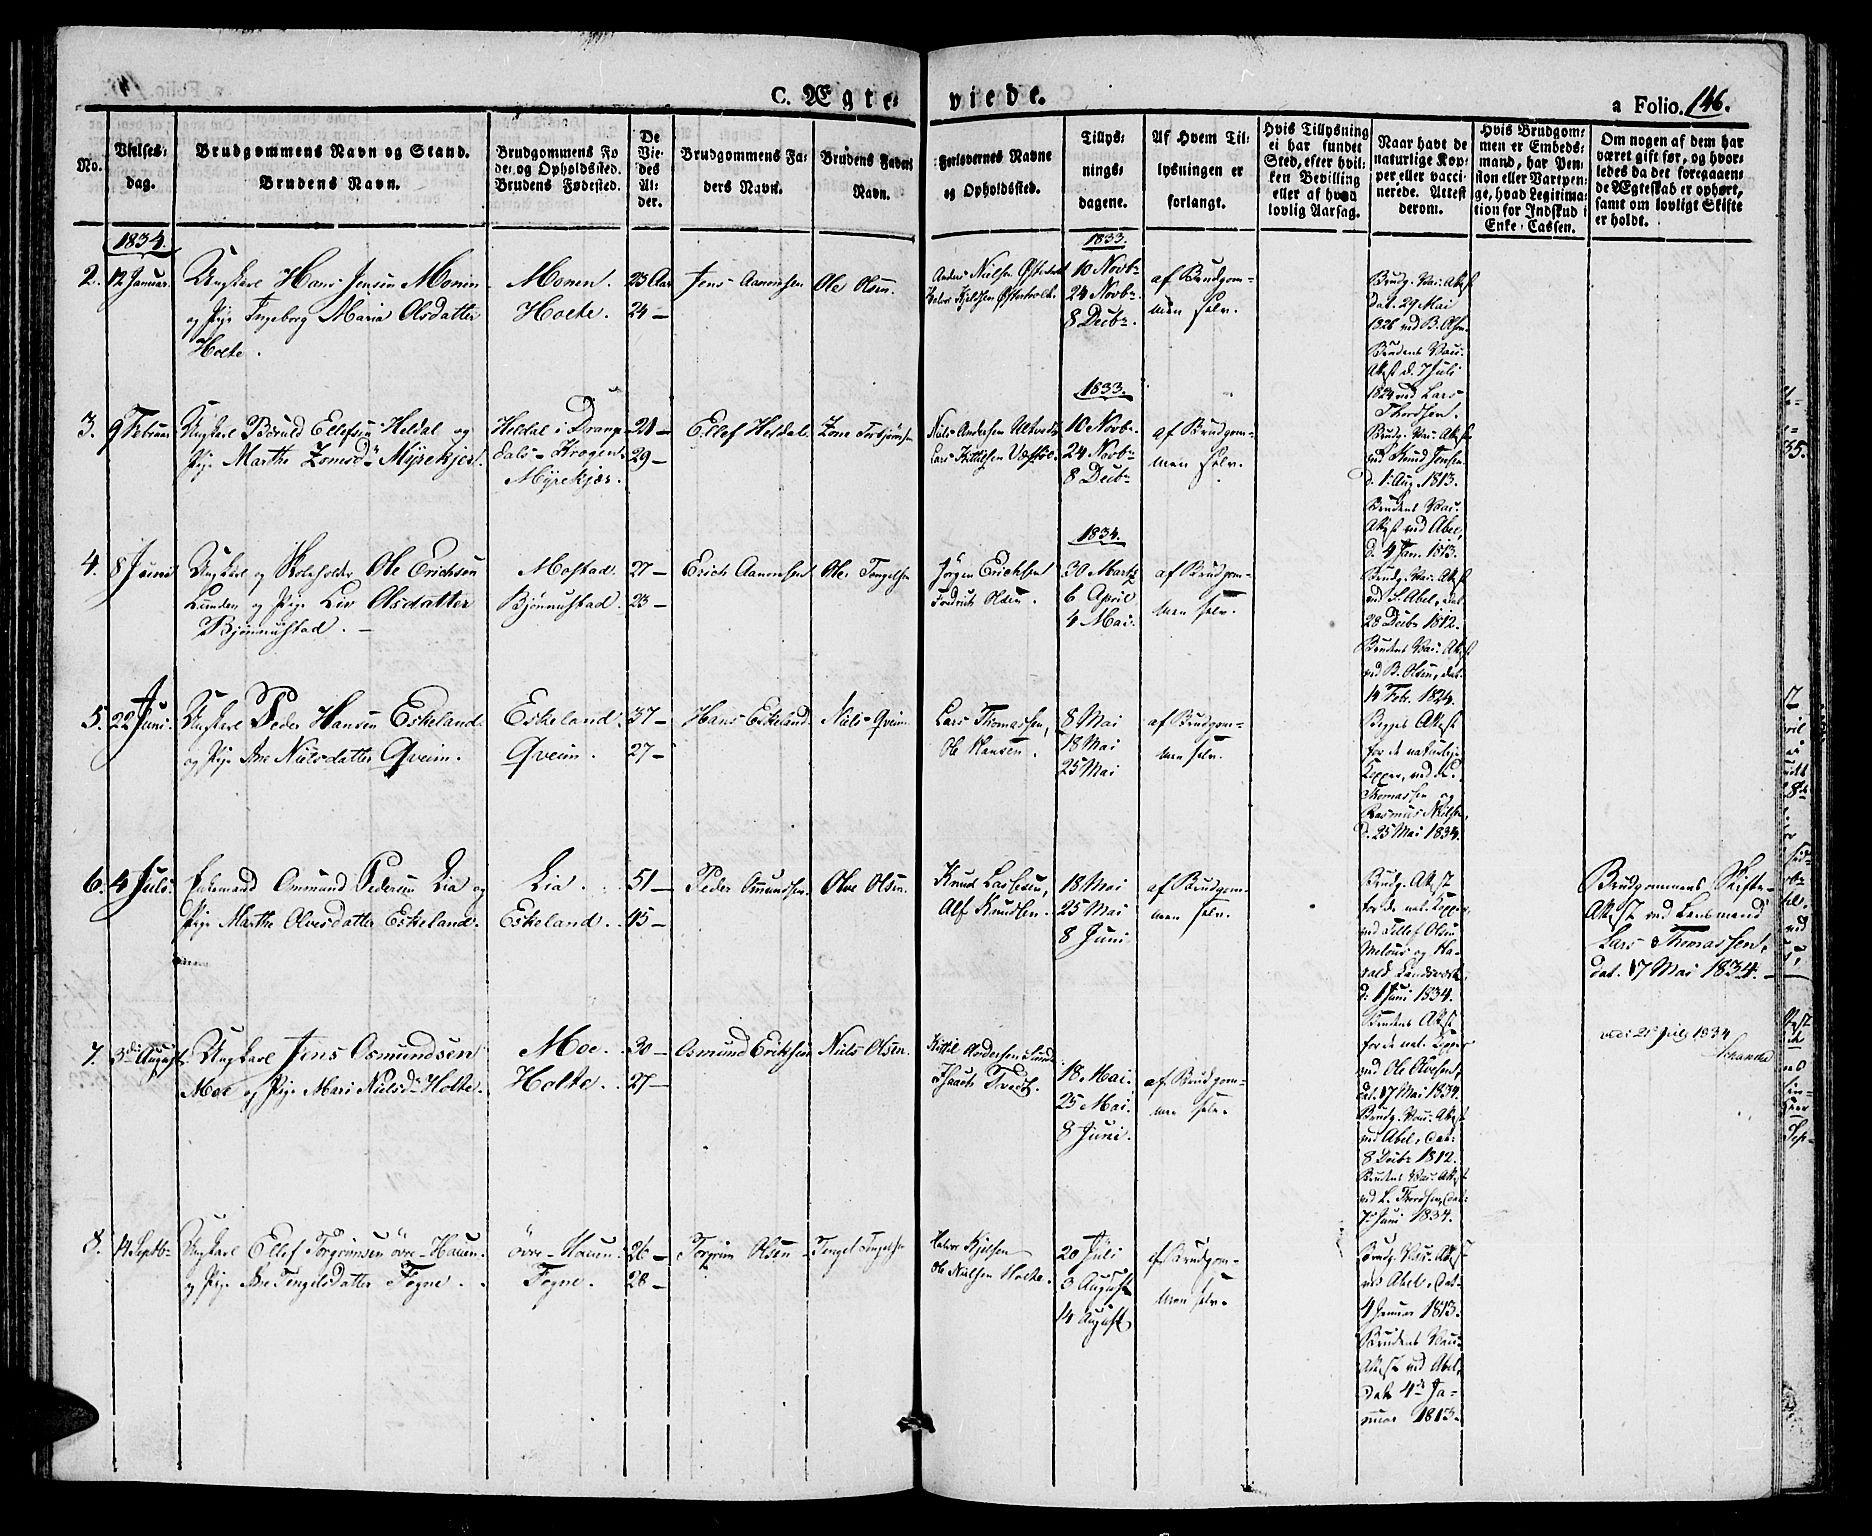 C. Ægte-
viede.
a Folio. 146.
No.
Vielses-
dag.
Brudgommens Navn og Stand.
Brudens Navn.
Brudgommens Fø
de- og Opholdssted.
Brudens Fødested.
De
Vie-
des
Al-
der.
Brudgommens Fa-
ders Navn.
Brudens Faders
Navn.
Forlovernes Navne
og Opholdssted.
Tillys-
nings-
dagene.
Af Hvem Til-
lysningen er
forlangt.
Hvis Tillysning
ei har fundet
Sted, efter hvil-
ken Bevilling
eller af hvad
lovlig Aarsag.
Naar havt de
naturlige Kop-
per eller vacci-
nerede. Attest
derom.
Hvis Brudgom-
men er Embeds-
mand, har Pen-
sion eller Vartpen-
ge, hvad Legitima-
tion for Indskud i
Enke-Cassen.
Om nogen af dem har
været gift før, og hvor-
ledes da det foregaaen-
de Ægteskab er ophørt,
samt om lovligt Skifte
er holdt.
1834.
2. 12 Januar.
Ungkarl Hans Jensen Monen
og Pige Ingeborg Maria Olsdatter
Holte.
Monen.
Holte.
23 Aar
24 —
Jens Aanensen
Ole Olsen.
Anders Nielsen
Halvor Kjelsen
1833.
10 Novbr.
24 Novbr.
8 Decbr.
af Brudgom-
men selv.
Brudg. Vac. Attest
dat. 29 Mai
1826 ved B. Olsen.
Brudens Vac.
Attest d. 7 Juli
1824 ved Lars
Thordsen.
3. 9 Februar
Ungkarl Børuld Ellefsen Heldal og
Pige Marthe Zomsdr Myrekjer.
Heldal i Drange-
dals- Krogen.
Myrekjær.
21 —
29 —
Ellef Heldal.
Zome Torbjørnsen
Niels Andersen
Lars Kittilsen
1833.
10 Novbr.
24 Novbr.
8 Decbr
af Brudgom-
men selv.
Brudg. Vac. Attest
ved Knud Jensen
d. 1 Aug. 1813.
Brudens Vac.
Attest ved Abel,
d. 4 Jan. 1813.
4. 8 Juni
Ungkarl og Skoleholder Ole Erichsen
Lunden og Pige Liv Olsdatter
Bjønnustad. —
Mostad
Bjønnustad.
27 —
23 —
Erich Aanensen
Ole Tengelsen
Jørgen Erichsen
Fredrich Olsen.
1834.
30 Marts
6 April
4 Mai.
af Brudgom-
men selv.
Brudg. Vac. Attest
ved S. Abel, dat.
28 Decbr 1812.
Brudens Vac. Attest
ved B. Olsen, dat.
14 Febr. 1824.
5. 22 Juni.
Ungkarl Peder Hansen Eskeland
og Pige Ane Nielsdatter Qveim.
Eskeland.
Qveim.
37 —
27 —
Hans Eskeland.
Niels Qveim
Lars Thomassen,
Ole Hansen.
8 Mai
18 Mai
25 Mai
af Brudgom-
men selv.
Begges Attest
for de naturlige
Kopper, ved L.
Thomassen og
Rasmus Nielsen,
d. 25 Mai 1834.
6. 4 Juli.
Enkemand Ommund Pedersen Lia og
Pige Marthe Olvesdatter Eskeland.
Lia.
Eskeland.
51 —
45 —
Peder Omundsen.
Olve Olsen.
Knud Larsesen,
Alf Knudsen.
18 Mai
25 Mai
8 Juni
af Brudgom-
men selv.
Brudg. Attest
for de nat. Kopper,
ved Ellef Olsen
og Ha-
vald
d. 1 Juni 1834.
Brudens Attest
for de nat. Kopper
ved Ole Olvesen,
dat. 17 Mai 1834.
Brudgommens Skifte-
Attest ved Lensmand
Lars Thomassen,
dat. 17 Mai 1834. —
7. 3de August
Ungkarl Jens Osmundsen
Moe og Pige Mari Nielsdr Holte.
Moe.
Holte.
30 —
27 —
Osmund Erichsen
Niels Olsen.
Kittil Andersen
Isaach Tvedt.
18 Mai.
25 Mai.
8 Juni.
af Brudgom-
men selv.
Brudg. Vac. Attest
ved Abel, dat.
8 Decbr 1812.
Brudens Vac. Attest
ved L. Thordsen, dat.
7 Juni 1834.
21 July 1834
8. 14 Septbr
Ungkarl Ellef Torgrimsen øvre-Hauen.
og Pige Ane Tengelsdatter Fogne.
øvre-Hauen.
Fogne.
26 —
28 —
Torgrim Olsen
Tengel Tengelsen
Halvor Kjelsen
Ole Nielsen Holte.
20 Juli
3 August
14 August
af Brudgom-
men selv.
Brudg. Vac. Attest
ved Abel, dat.
4 Januar 1813.
Brudens Vac.
Attest ved Abel,
dat. 4de Ja-
nuar 1813.